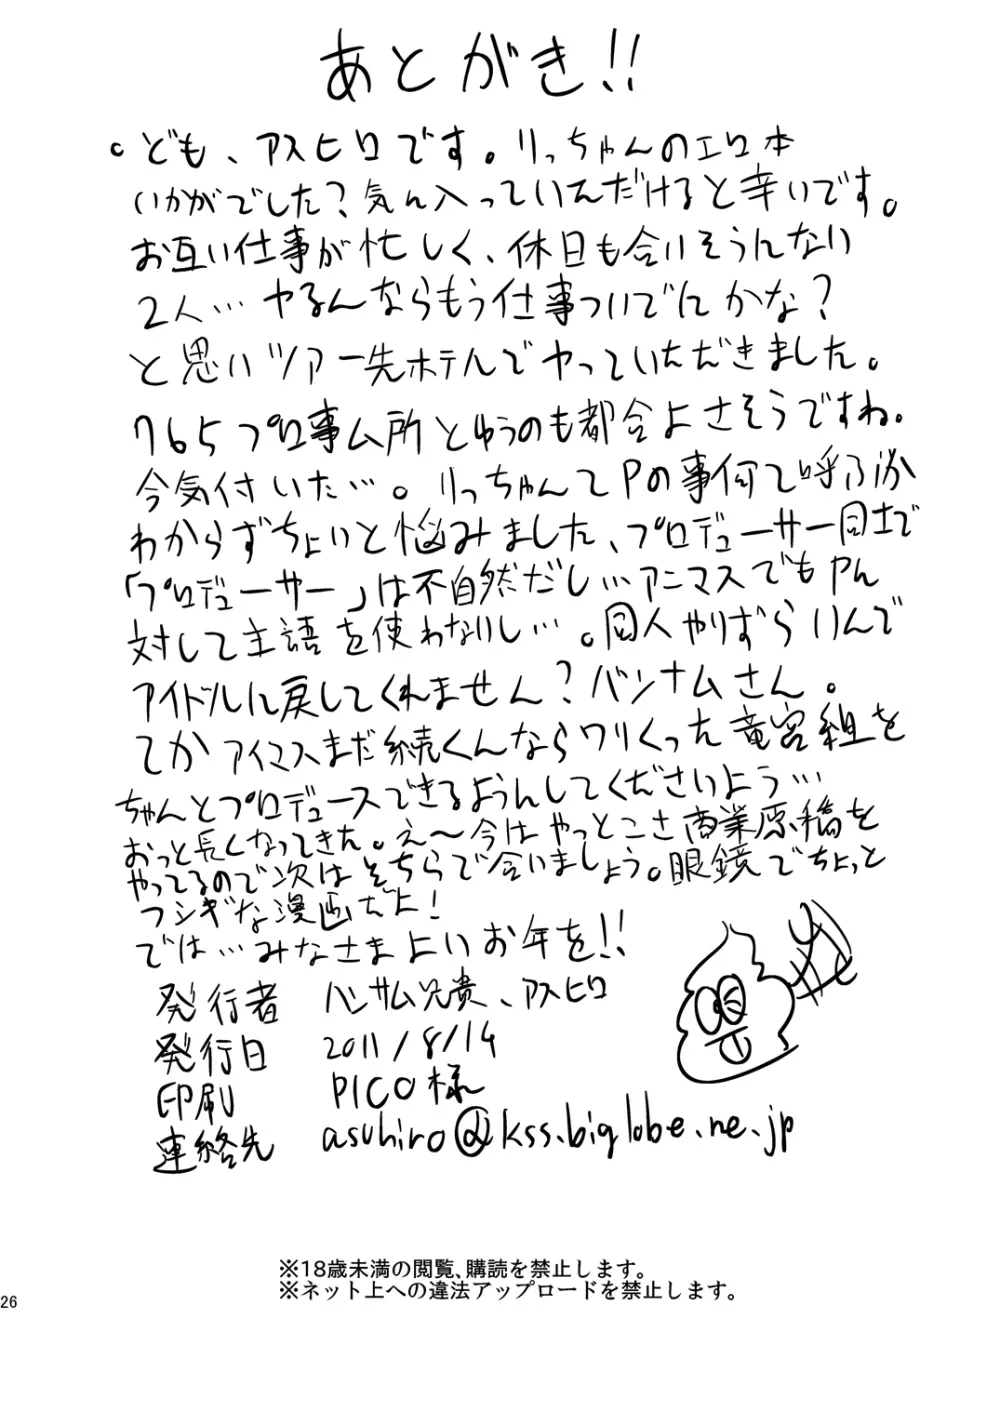 あとがき!!
。ども、アスヒロです。りっちゃんのエロ本
いかがでした?気に入っていただけると幸いです。
お互い仕事が忙しく、休日も合いそうにない
2人…ヤるんならもう仕事ついでにかな?
と思いツアー先ホテルでヤっていただきました。
765プロ事ム所とゆうのも都合よさそうですね。
今気付いた…。りっちゃんてPの事何て呼ぶか
わからずちょいと悩みました、プロデューサー同士で
「プロデューサー」は不自然だし…アニマスでもPに
対して主語を使わないし…。同人やりずらいんで
アイドルに戻してくれません?バンナムさん。
てかアイマスまだ続くんならワりくった竜宮組を
ちゃんとプロデュースできるようにしてくださいよう…
おっと長くなってきた。え〜今はやっとこさ商業原稿を
やってるので次はそちらで会いましょう。眼鏡でちょっと
フシギな漫画だよ!
では…みなさまよいお年を!!
発行者 ハンサム兄貴、アスヒロ
発行日 2011/8/14
印刷 PICO様
連絡先 asuhiro@kss.biglobe.ne.jp
※18歳未満の閲覧、購読を禁止します。
※ネット上への違法アップロードを禁止します。
26